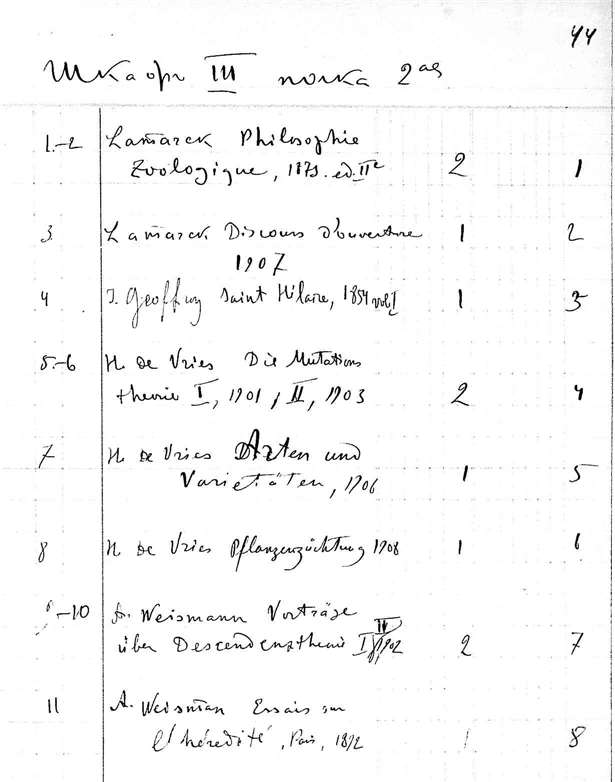 44
Шкафъ III полка 2ая
1-2 Lamarck Philosophie
Zoologique, 1873. ed. IIe 2 1
3 Lamarck Discours d'ouverture 1 2
1907
4 I. Geoffroy Saint Hilaire, 1854 vol I 1 3
5-6 H. De Vries Die Mutations
theorie I, 1901, II, 1903 2 4
7 H. De Vries Arten und
Varietäten, 1906 1 5
8 H. De Vries Pflanzenzüchtung 1908 1 6
9-10 A. Weismann Vorträge
über Descendenztheorie I, II 1902 2 7
11 A. Weisman Essais sur
l'hérédité, Paris, 1892 1 8